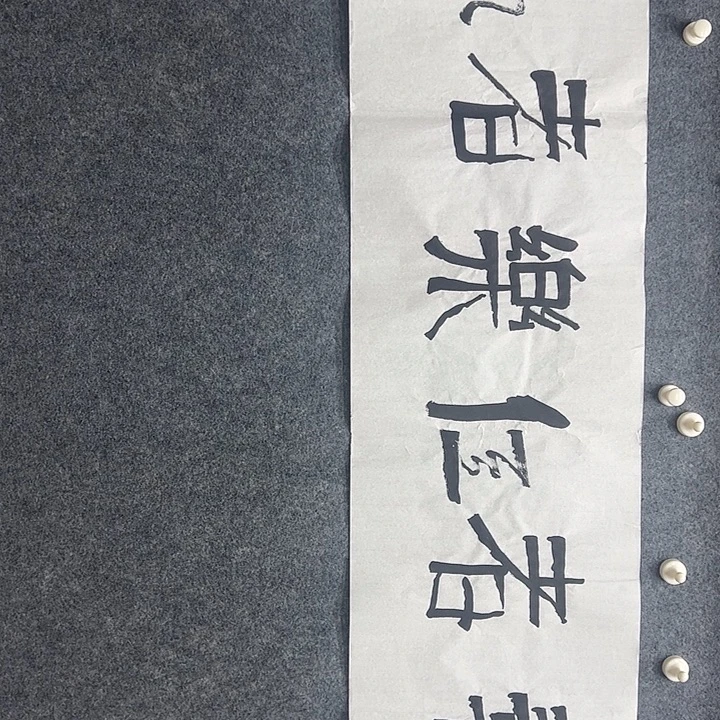 者樂仁者